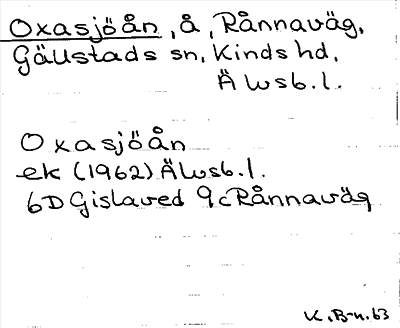 Oxasjöån, å, Rånnaväg,
Gällstads sn, Kinds hd,
Älvsb. l.
Oxasjöån
ek (1962) Älvsb. l.
6D Gislaved 9c Rånnaväg
K. B-n. 63